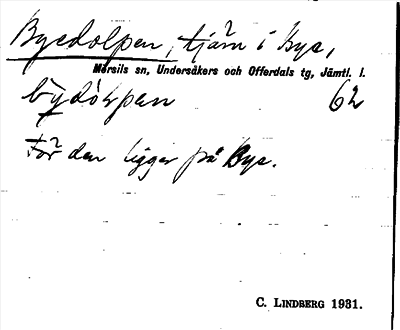 Byedolpen, tjärn i Bye,
Mörsils sn, Undersåkers och Offerdals tg, Jämtl. l.
62
för den ligger på Bye.
C. LINDBERG 1931.